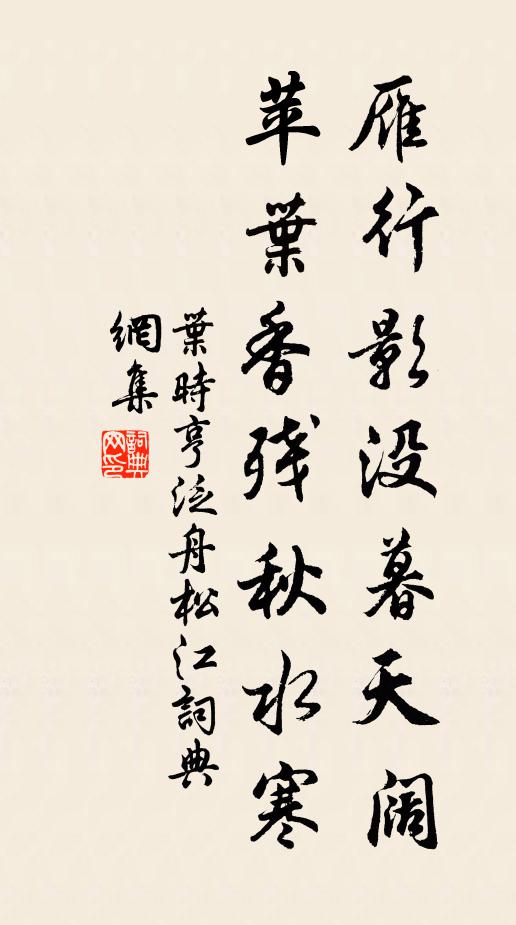 雁行影没暮天阔
苹葉香残秋水寒
葉時亨泛舟松江詞典
網集
詞典網印